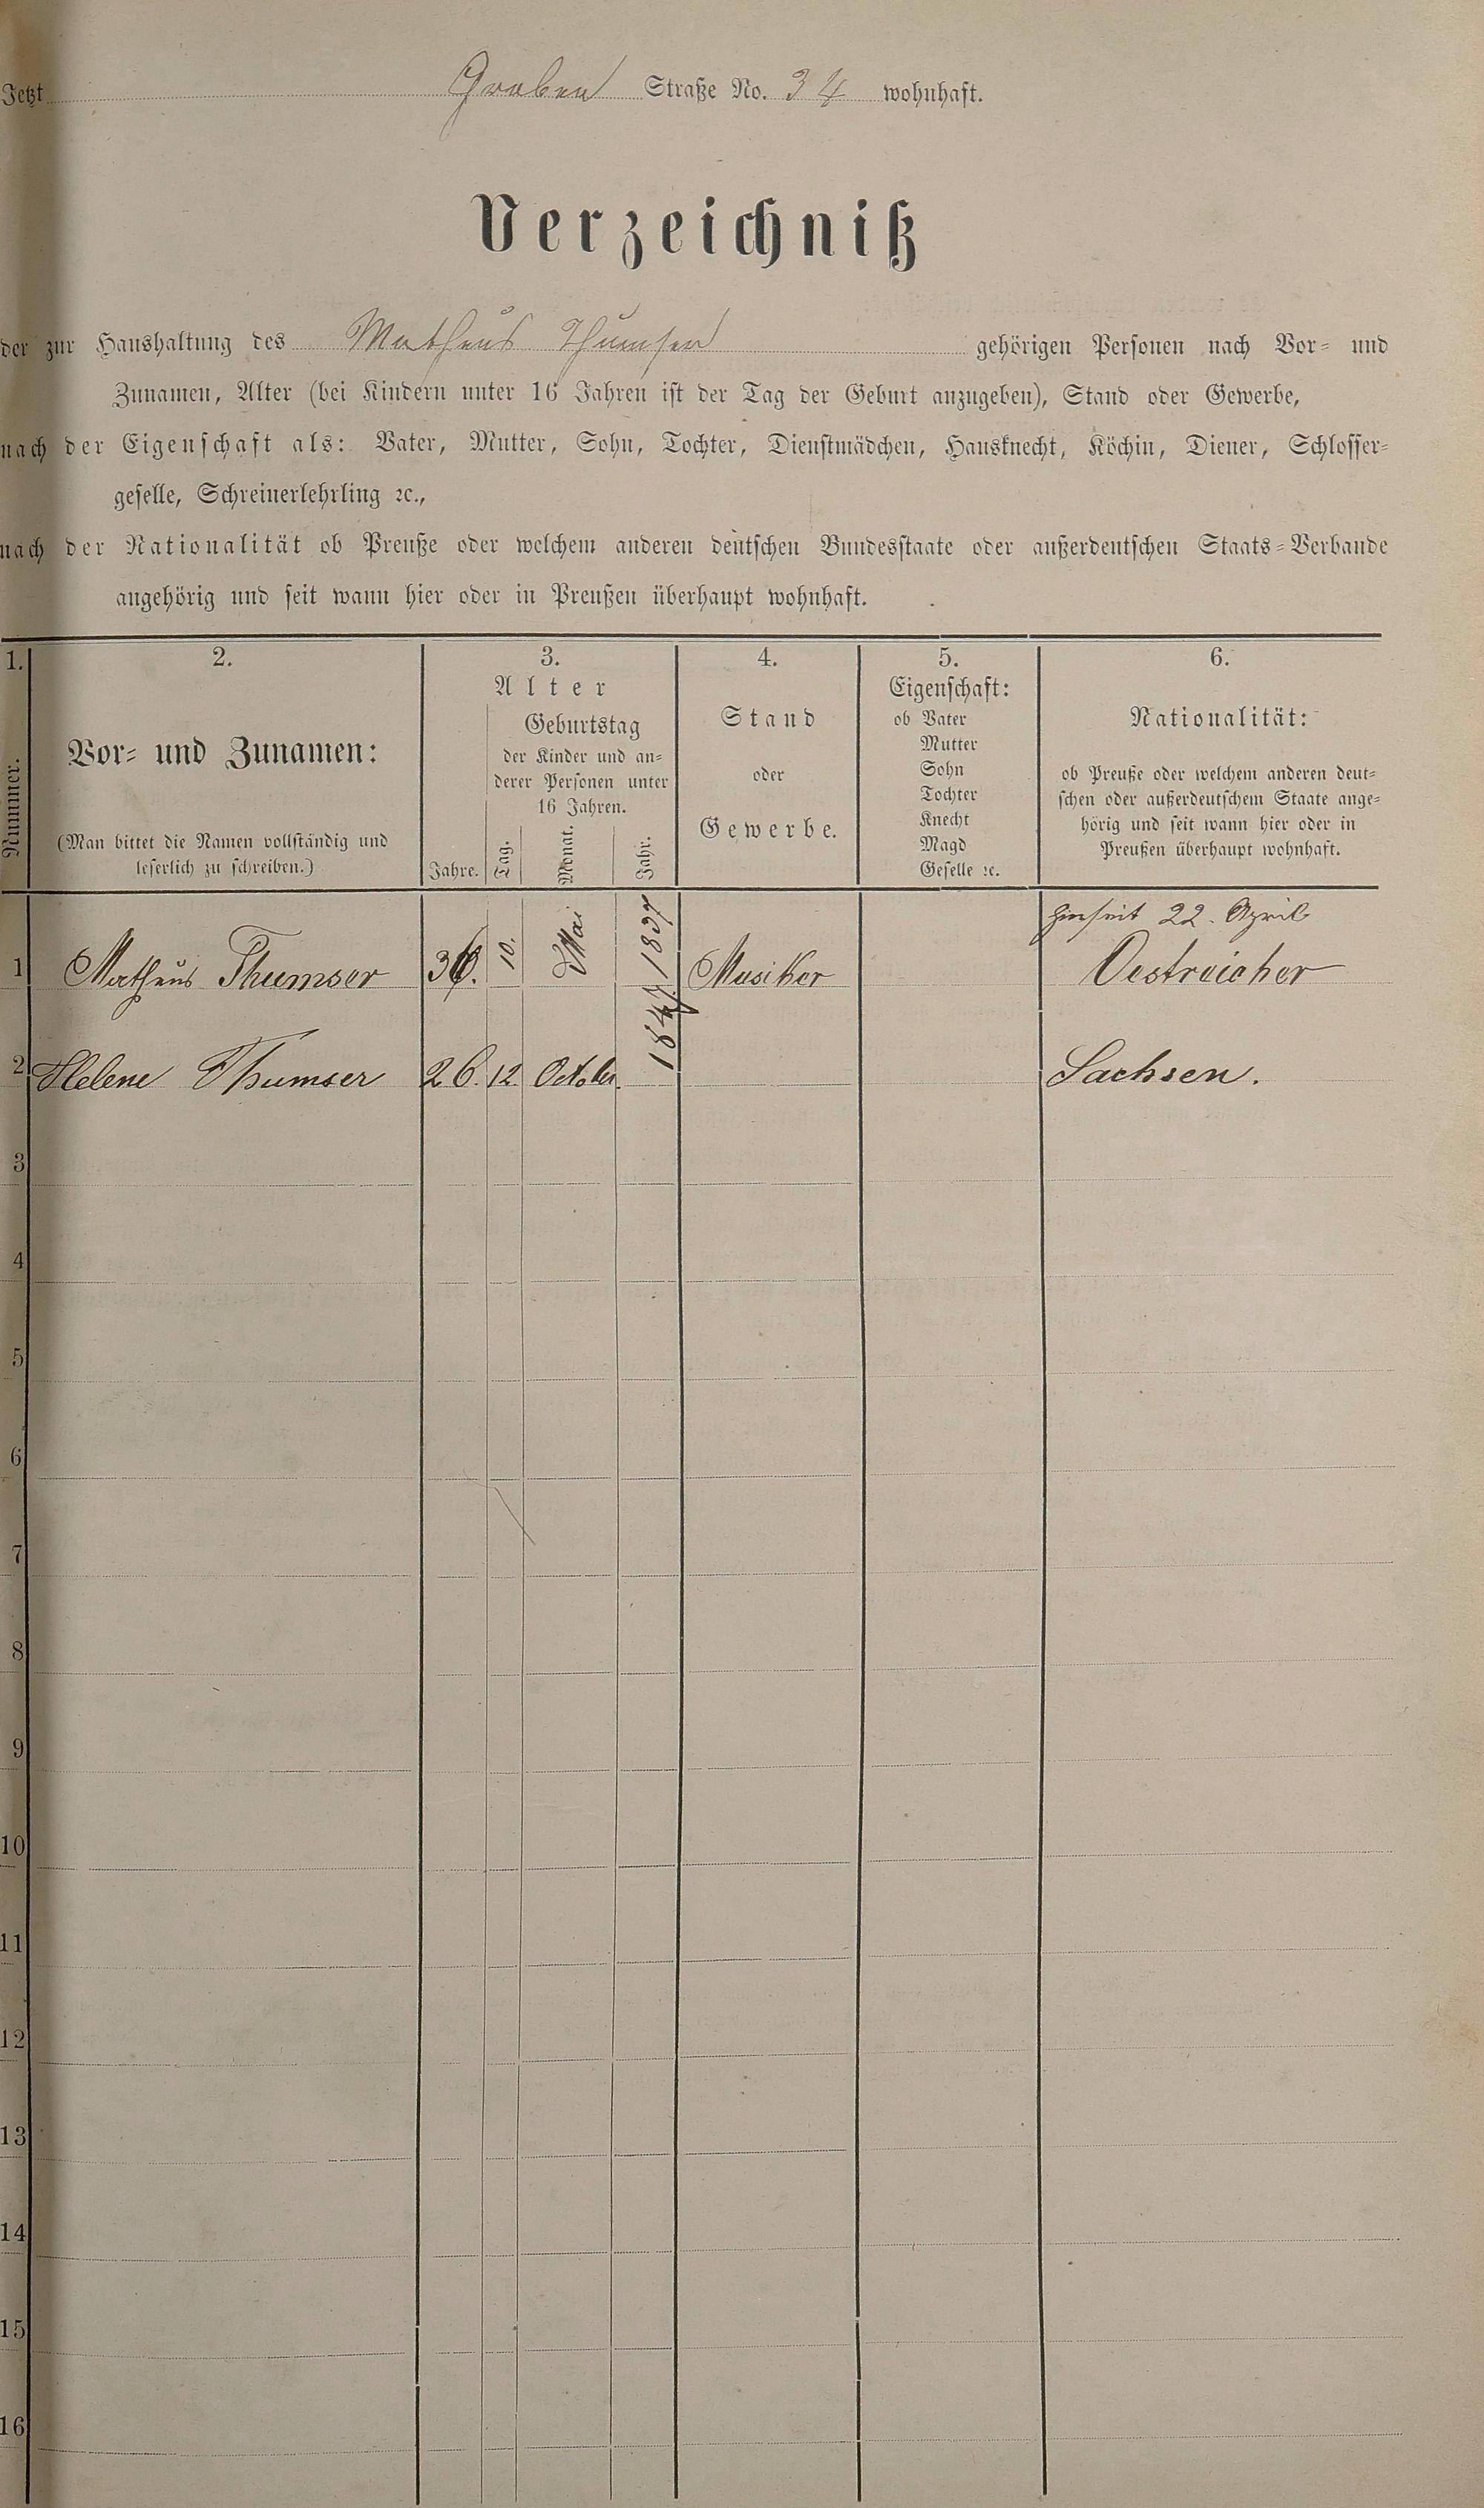 Jetzt Graben Straße No. 34 wohnhaft.
Verzeichniß
der zur Haushaltung des Matheus Thumser gehörigen Personen nach Vor- und
Zunamen, Alter (bei Kindern unter 16 Jahren ist der Tag der Geburt anzugeben), Stand oder Gewerbe,
nach der Eigenschaft als: Vater, Mutter, Sohn, Tochter, Dienstmädchen, Hausknecht, Köchin, Diener, Schlosser-
geselle, Schreinerlehrling ꝛc.,
nach der Nationalität ob Preuße oder welchem anderen deutschen Bundesstaate oder außerdeutschen Staats-Verbande
angehörig und seit wann hier oder in Preußen überhaupt wohnhaft.
1.
Nummer.
2.
Vor- und Zunamen:
(Man bittet die Namen vollständig und
leserlich zu schreiben.)
3.
Alter
Geburtstag
der Kinder und an-
derer Personen unter
16 Jahren.
Jahre.
Tag.
Monat.
Jahr.
4.
Stand
oder
Gewerbe.
5.
Eigenschaft:
ob Vater
Mutter
Sohn
Tochter
Knecht
Magd
Geselle ꝛc.
6.
Nationalität:
ob Preuße oder welchem anderen deut-
schen oder außerdeutschem Staate ange-
hörig und seit wann hier oder in
Preußen überhaupt wohnhaft.
seit 22. April
1 Matheus Thumser 36. 10. Mai 1837 Musiker Oestreicher
2 Helene Thumser 26. 12. October. 1847 Sachsen.
3
4
5
6
7
8
9
10
11
12
13
14
15
16